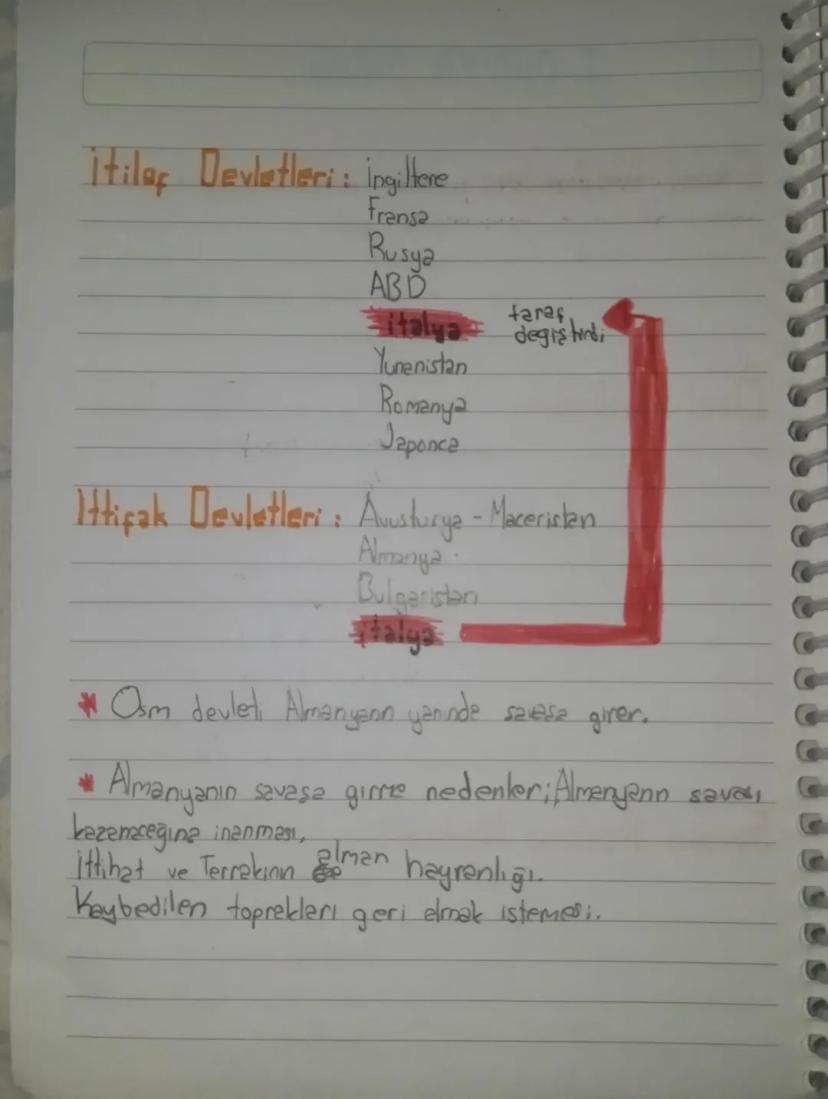 İtilaf Devletleri: İngiltere
Fransa
Rusya
ABD
italya taraf değiştirdi
Yunanistan
Romanya
Japonca
İttifak Devletleri: Avusturya - Maceristan
Almanya
Bulgaristan
italya
* Osm devleti Almanyanın yanında savaşa girer.
* Almanyanın savaşa girme nedenler; Almanyanın savaşı
kazanacağına inanması,
İttihat ve Terrakinin alman hayranlığı.
Kaybedilen toprakları geri almak istemesi.